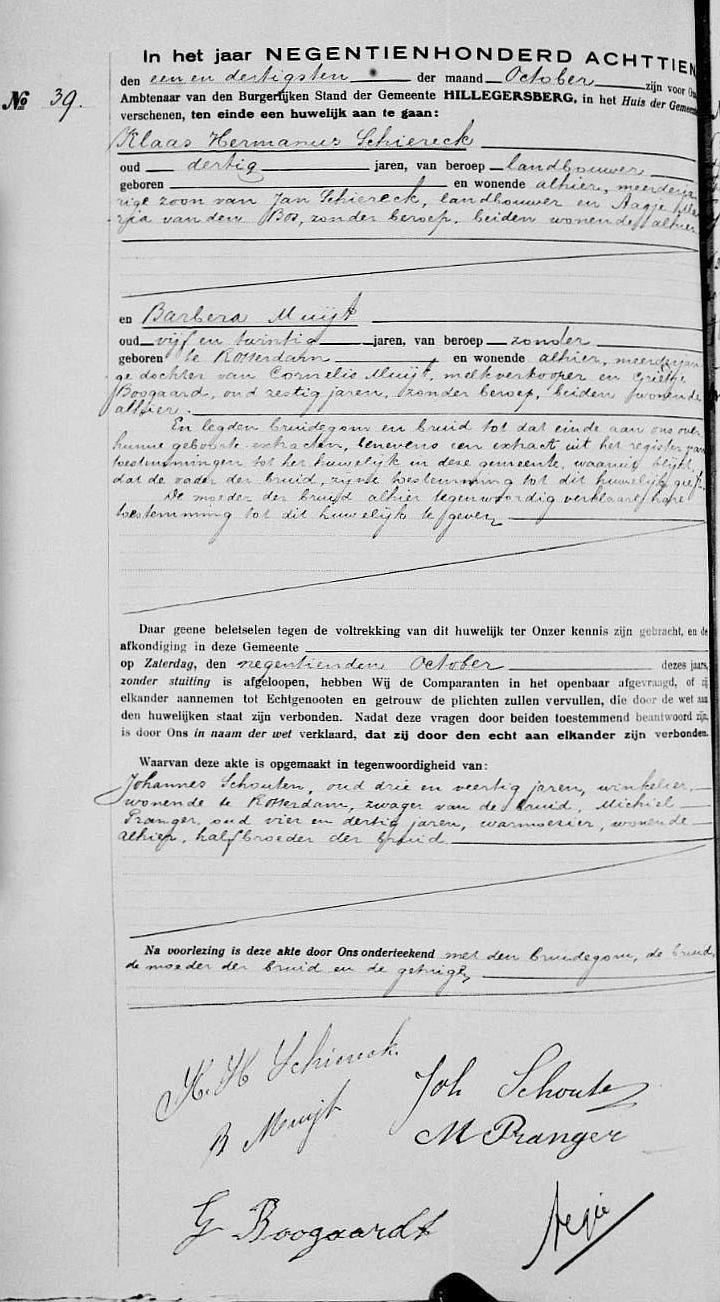 In het jaar NEGENTIENHONDERD ACHTTIEN
den een en dertigsten der maand October zijn voor
No 39.
Ambtenaar van den Burgerlijken Stand der Gemeente HILLEGERSBERG, in het Huis der Gemeente
verschenen, ten einde een huwelijk aan te gaan:
Klaas Hermanus Schiereck
oud dertig jaren, van beroep landbouwer
geboren en wonende alhier, meerderja
rige zoon van Jan Schiereck, landbouwer en Aagje
van den Bos, zonder beroep, beiden wonende alhier
en Barbera Muijt
oud vijf en twintig jaren, van beroep zonder
geboren te Rotterdam en wonende alhier, meerderjari
ge dochter van Cornelis Muijt, melkverkooper en Grietje
Boogaard, oud zestig jaren, zonder beroep, beiden wonende
alhier.
En legden bruidegom en bruid tot dat einde aan ons over
hunne geboorte-extracten, benevens een extract uit het register van
toestemmingen tot het huwelijk in deze gemeente, waaruit blijkt,
dat de vader der bruid, zijne toestemming tot dit huwelijk geeft.
De moeder der bruid alhier tegenwoordig verklaarde hare
toestemming tot dit huwelijk te geven
Daar geene beletselen tegen de voltrekking van dit huwelijk ter Onzer kennis zijn gebracht, en de
afkondiging in deze Gemeente
op Zaterdag, den negentienden October dezes jaars,
zonder stuiting is afgeloopen, hebben Wij de Comparanten in het openbaar afgevraagd, of zij
elkander aannemen tot Echtgenooten en getrouw de plichten zullen vervullen, die door de wet aan
den huwelijken staat zijn verbonden. Nadat deze vragen door beiden toestemmend beantwoord zijn,
is door Ons in naam der wet verklaard, dat zij door den echt aan elkander zijn verbonden.
Waarvan deze akte is opgemaakt in tegenwoordigheid van:
Johannes Schouten, oud drie en veertig jaren, winkelier,
wonende te Rotterdam, zwager van de bruid, Michiel
Pranger, oud vier en dertig jaren, warmoesier, wonende
alhier, halfbroeder der bruid
Na voorlezing is deze akte door Ons onderteekend met den bruidegom, de bruid,
de moeder der bruid en de getuigen
K. H Schiereck
Joh Schouten
B Muijt
M Pranger
G Boogaardt